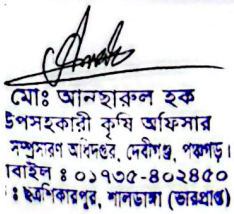 মোঃ আনছারুল হক
উপসহকারী কৃষি অফিসার
সম্প্রসারণ অধিদপ্তর, দেবীগঞ্জ, পঞ্চগড়।
বাইল ঃ ০১৭৩৫-৪০২৪৫০
ঃ ছত্রশিকারপুর, শালডাঙ্গা (ভারপ্রাপ্ত)